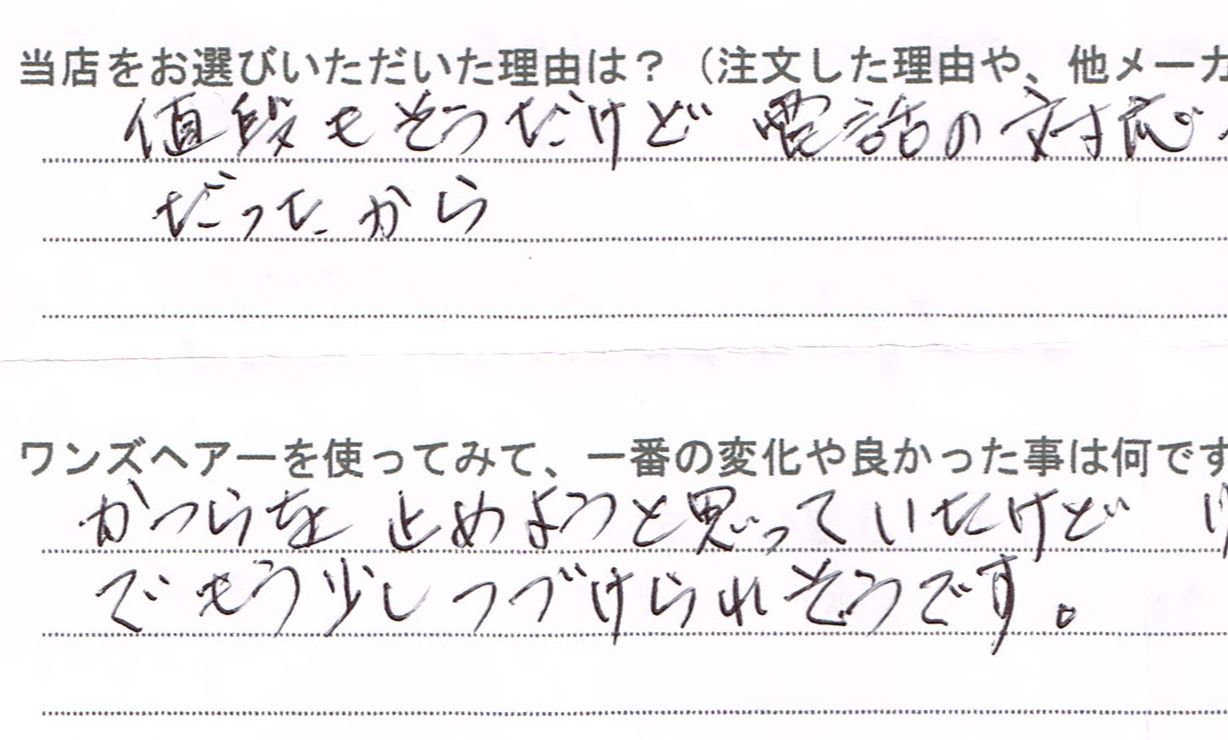 当店をお選びいただいた理由は？（注文した理由や、他メーカ
値段もそうだけど 電話の対応
だったから
ワンズヘアーを使ってみて、一番の変化や良かった事は何です
かつらを止めようと思っていたけど
でもう少しつづけられそうです。